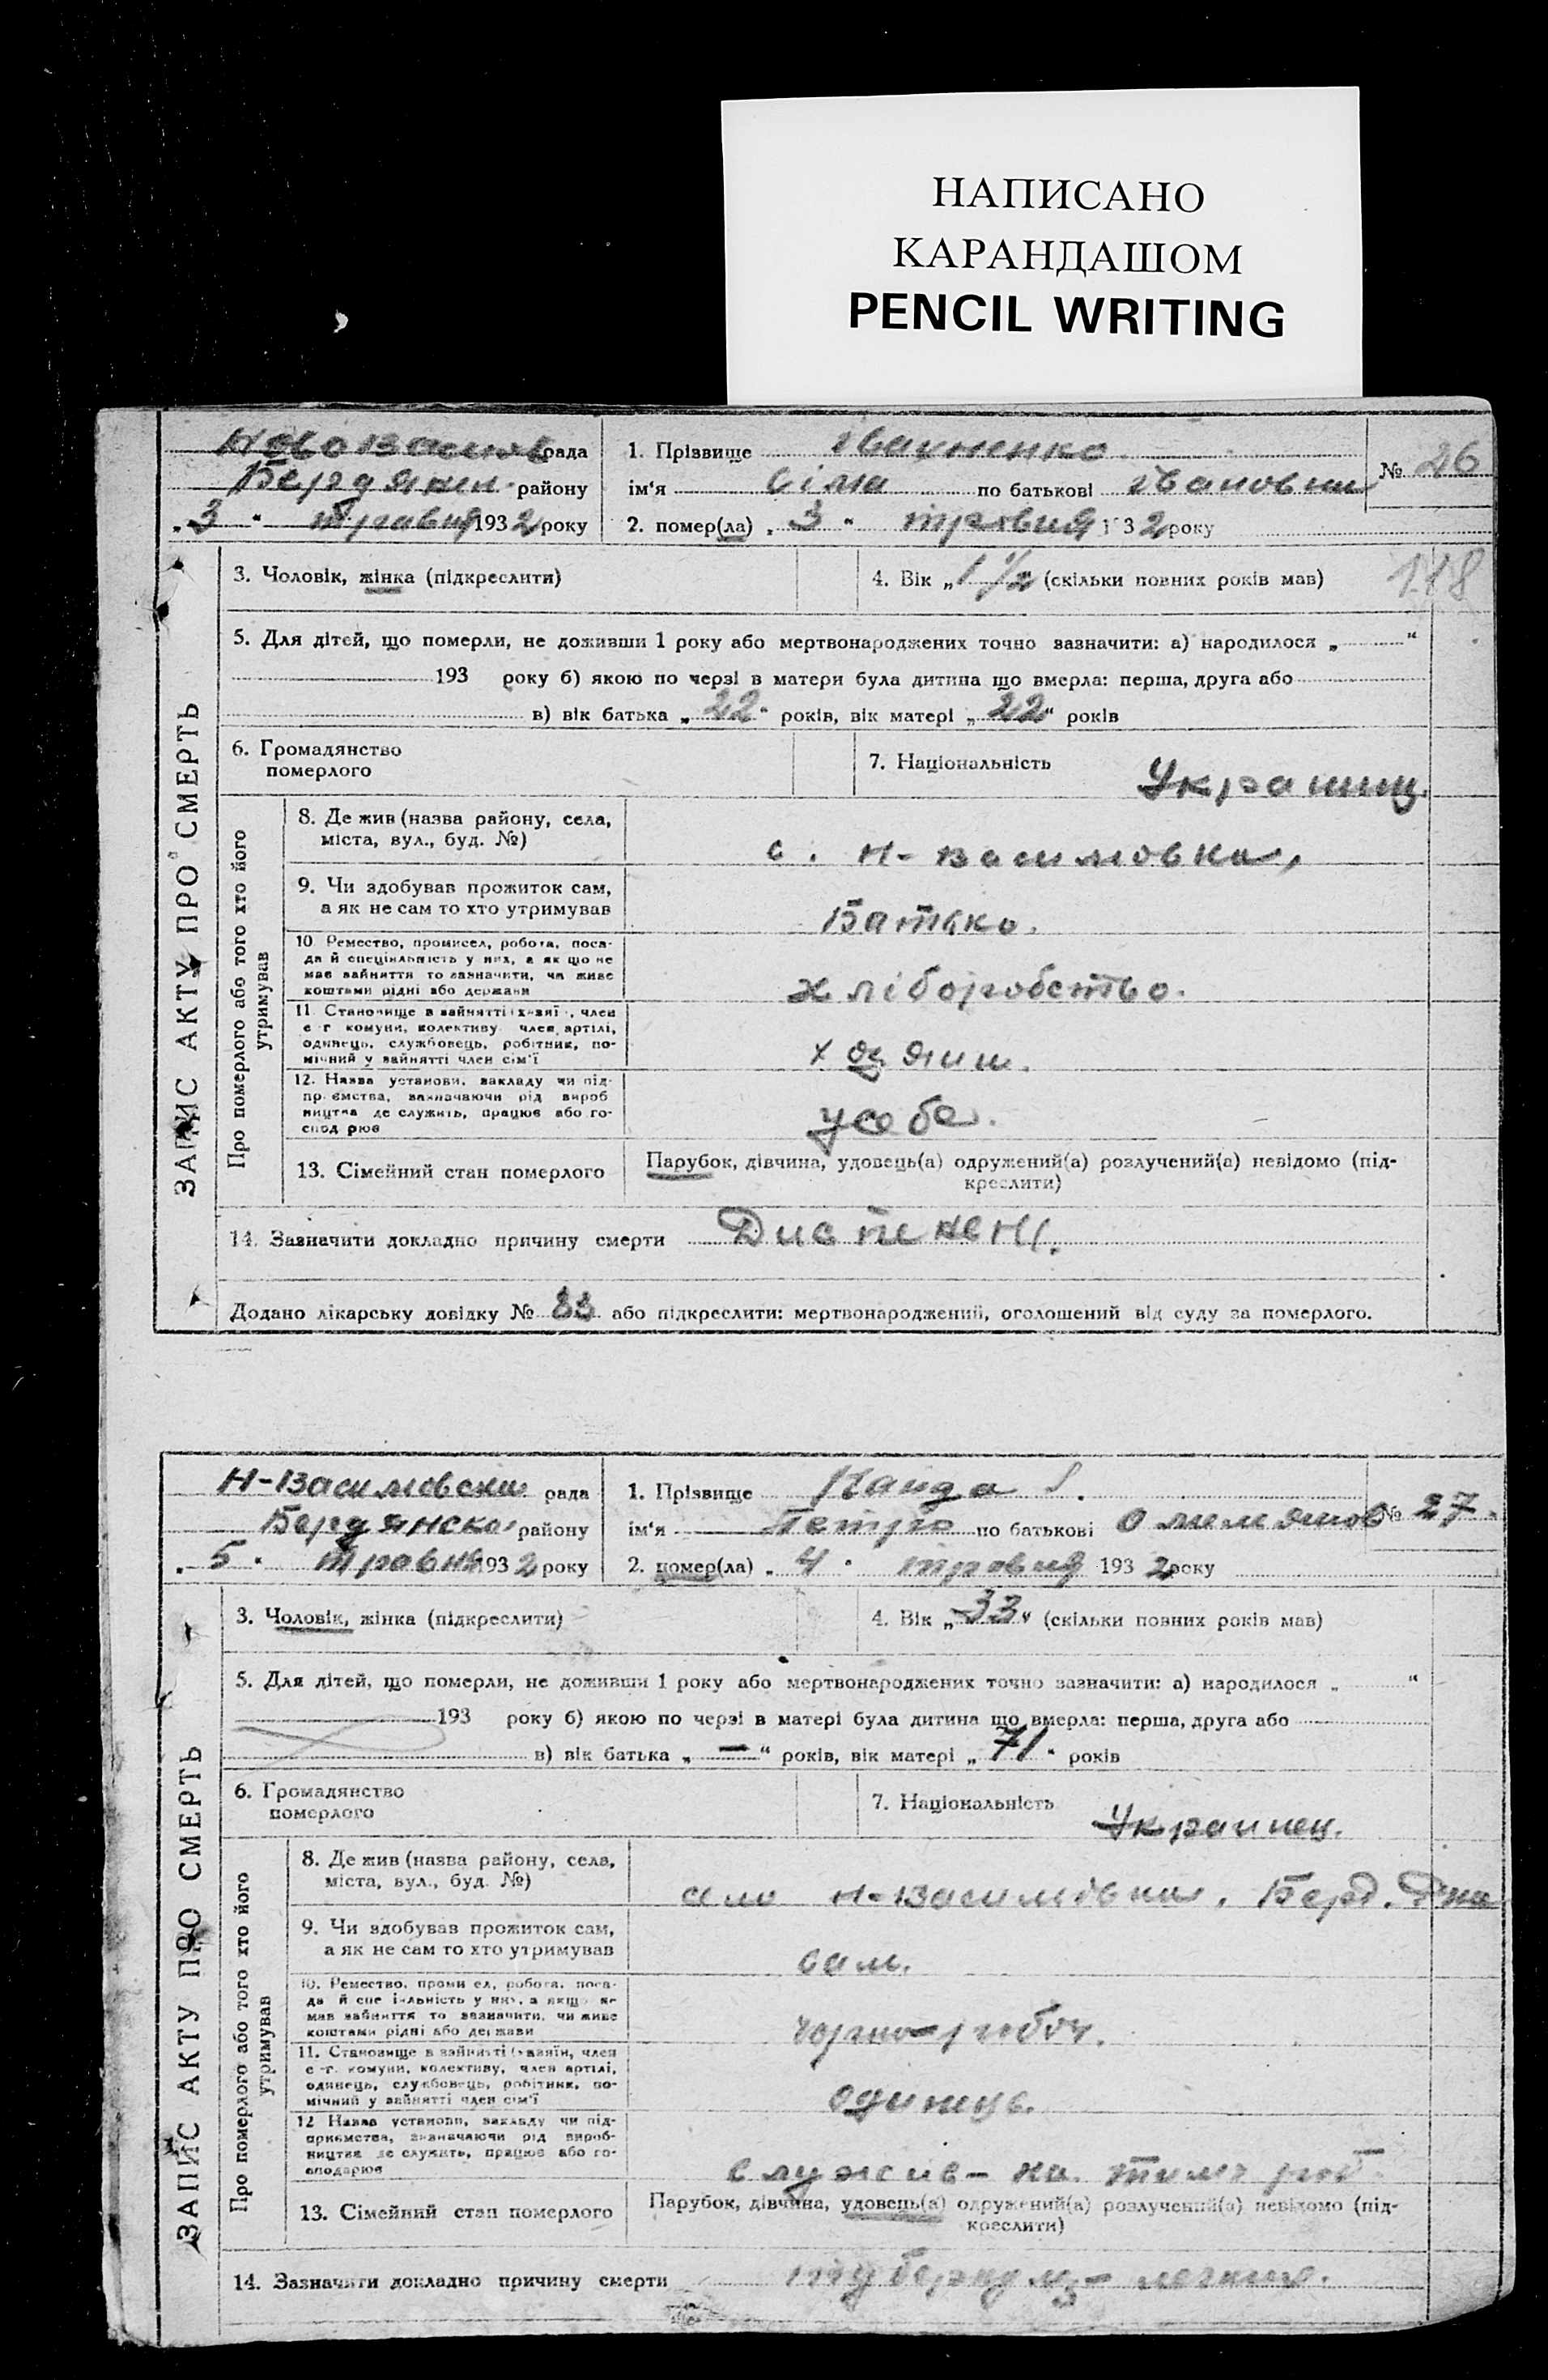 НАПИСАНО
КАРАНДАШОМ
PENCIL WRITING
рада
1. Прізвище Івахненко
№ 26
Бердянськ. району
ім'я Сіма по батькові Івановни
„3“ травня 1932 року
2. помер(ла) „3“ травня 1932 року
3. Чоловік, жінка (підкреслити)
4. Вік „1 1/2 (скільки повних років мав)
118
5. Для дітей, що померли, не доживши 1 року або мертвонароджених точно зазначити: а) народилося „ “
193 року б) якою по черзі в матери була дитина що вмерла: перша, друга або
в) вік батька „22“ років, вік матері „22“ років
6. Громадянство
померлого
7. Національність
Украинц.
ЗАПИС АКТУ ПРО СМЕРТЬ
Про померлого або того хто його
утримував
8. Де жив (назва району, села,
міста, вул., буд. №)
с. Н-Василовка,
9. Чи здобував прожиток сам,
а як не сам то хто утримував
Батько.
10 Ремество, промисел, робота, поса-
да й спеціяльність у них, а як що не
мав зайняття то зазначити, чи живе
коштами рідні або держави
хліборобство.
11 Становище в зайнятті (хазяї , член
с г комуни, колективу член артілі,
одинець, службовець, робітник, по-
мічний у зайнятті член сім'ї
хозяин.
12. Назва установи, закладу чи під-
пр ємства, зазначаючи рід вироб
ництва де служить, працює або го-
спод рює
усебе.
13. Сімейний стан померлого
Парубок, дівчина, удовець(а) одружений(а) розлучений(а) невідомо (під-
креслити)
14. Зазначити докладно причину смерти
Додано лікарську довідку № 33 або підкреслити: мертвонароджений, оголошений від суду за померлого.
Н-Василовска рада
1. Прізвище
№ 27.
Бердянско району
ім'я Петро по батькові
„5“ травня 1932 року
2. помер(ла) „4“ травня 1932 року
3. Чоловік, жінка (підкреслити)
4. Вік „33“ (скільки повних років мав)
5. Для дітей, що померли, не доживши 1 року або мертвонароджених точно зазначити: а) народилося „ “
193 року б) якою по черзі в матері була дитина що вмерла: перша, друга або
в) вік батька „—“ років, вік матері „71“ років
6. Громадянство
померлого
7. Національність
Украинец.
ЗАПИС АКТУ ПРО СМЕРТЬ
Про померлого або того хто його
утримував
8. Де жив (назва району, села,
міста, вул., буд. №)
село Н-Василовка, Берд.
9. Чи здобував прожиток сам,
а як не сам то хто утримував
сам.
10. Ремество, проми ел, робота, поса-
да й спе іяльність у них, а якщо не
мав зайняття то зазначити, чи живе
коштами рідні або держави
чорно-робоч.
11. Становище в зайнятті (хазяїн, член
с -г. комуни, колективу, член артілі,
одинець, службовець, робітник, по-
мічний у зайнятті член сім'ї
одинець.
12 Назва установи, закладу чи під-
приємства, зазначаючи рід вироб-
ництва де служить, працює або го-
сподарює
служив - на.
13. Сімейний стан померлого
Парубок, дівчина, удовець(а) одружений(а) розлучений(а) невідомо (під-
креслити)
14. Зазначити докладно причину смерти туберкулз - легких.